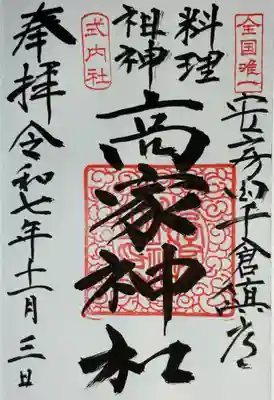 全国唯一
安房国千倉鎮座
料理
祖神
高家神社
式内社
奉拝 令和七年十一月三日